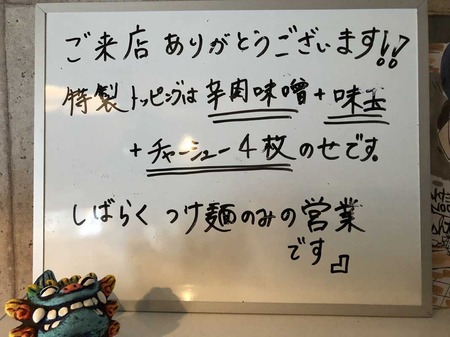 ご来店ありがとうございます!!
特製トッピングは辛肉味噌+味玉
+チャーシュー4枚のせです。
しばらくつけ麺のみの営業
です』